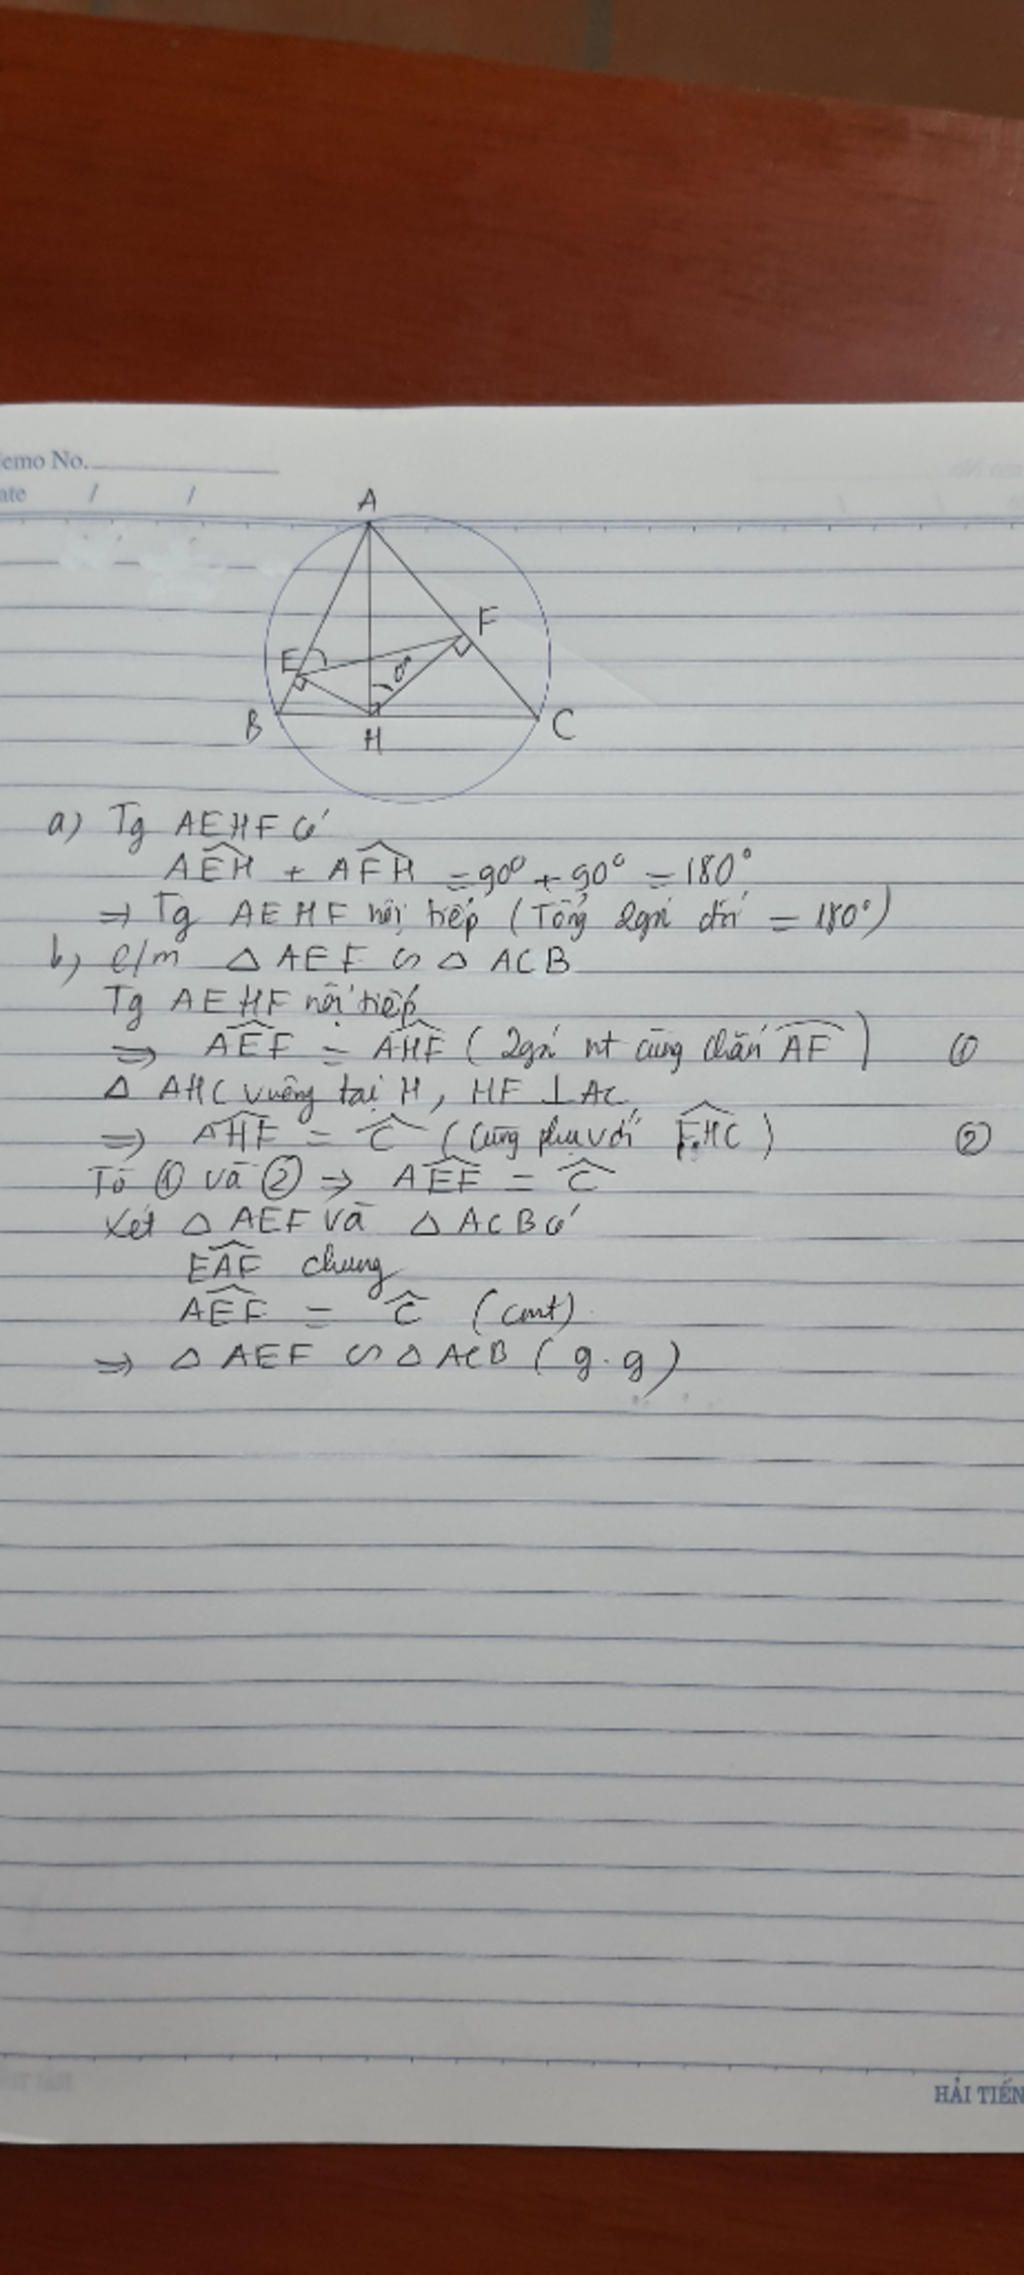 emo No.
ate / /
A
F
E
O
B
H
C
a) Tg AEHF có
AEH + AFH = 90° + 90° = 180°
⇒ Tg AEHF nội tiếp (Tổng 2 góc đối = 180°)
b, c/m △ AEF ∽ △ ACB
Tg AEHF nội tiếp
⇒ AEF = AHF (2 góc nt cùng chắn AF) ①
△ AHC vuông tại H, HF ⊥ AC
⇒ AHF = C (Cùng phụ với FHC) ②
Từ ① và ② ⇒ AEF = C
Xét △ AEF và △ ACB có
EAF chung
AEF = C (cmt).
⇒ △ AEF ∽ △ ACB (g.g)
HẢI TIẾN